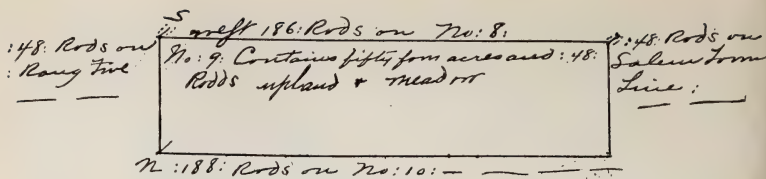 S west 186: Rods on No: 8:
:48: Rods on
: Rang Five
No: 9: Containes fifty four acres and :48:
Rodds upland & meadow
:48: Rods on
Salem Town
Line:
N :188: Rods on No: 10: